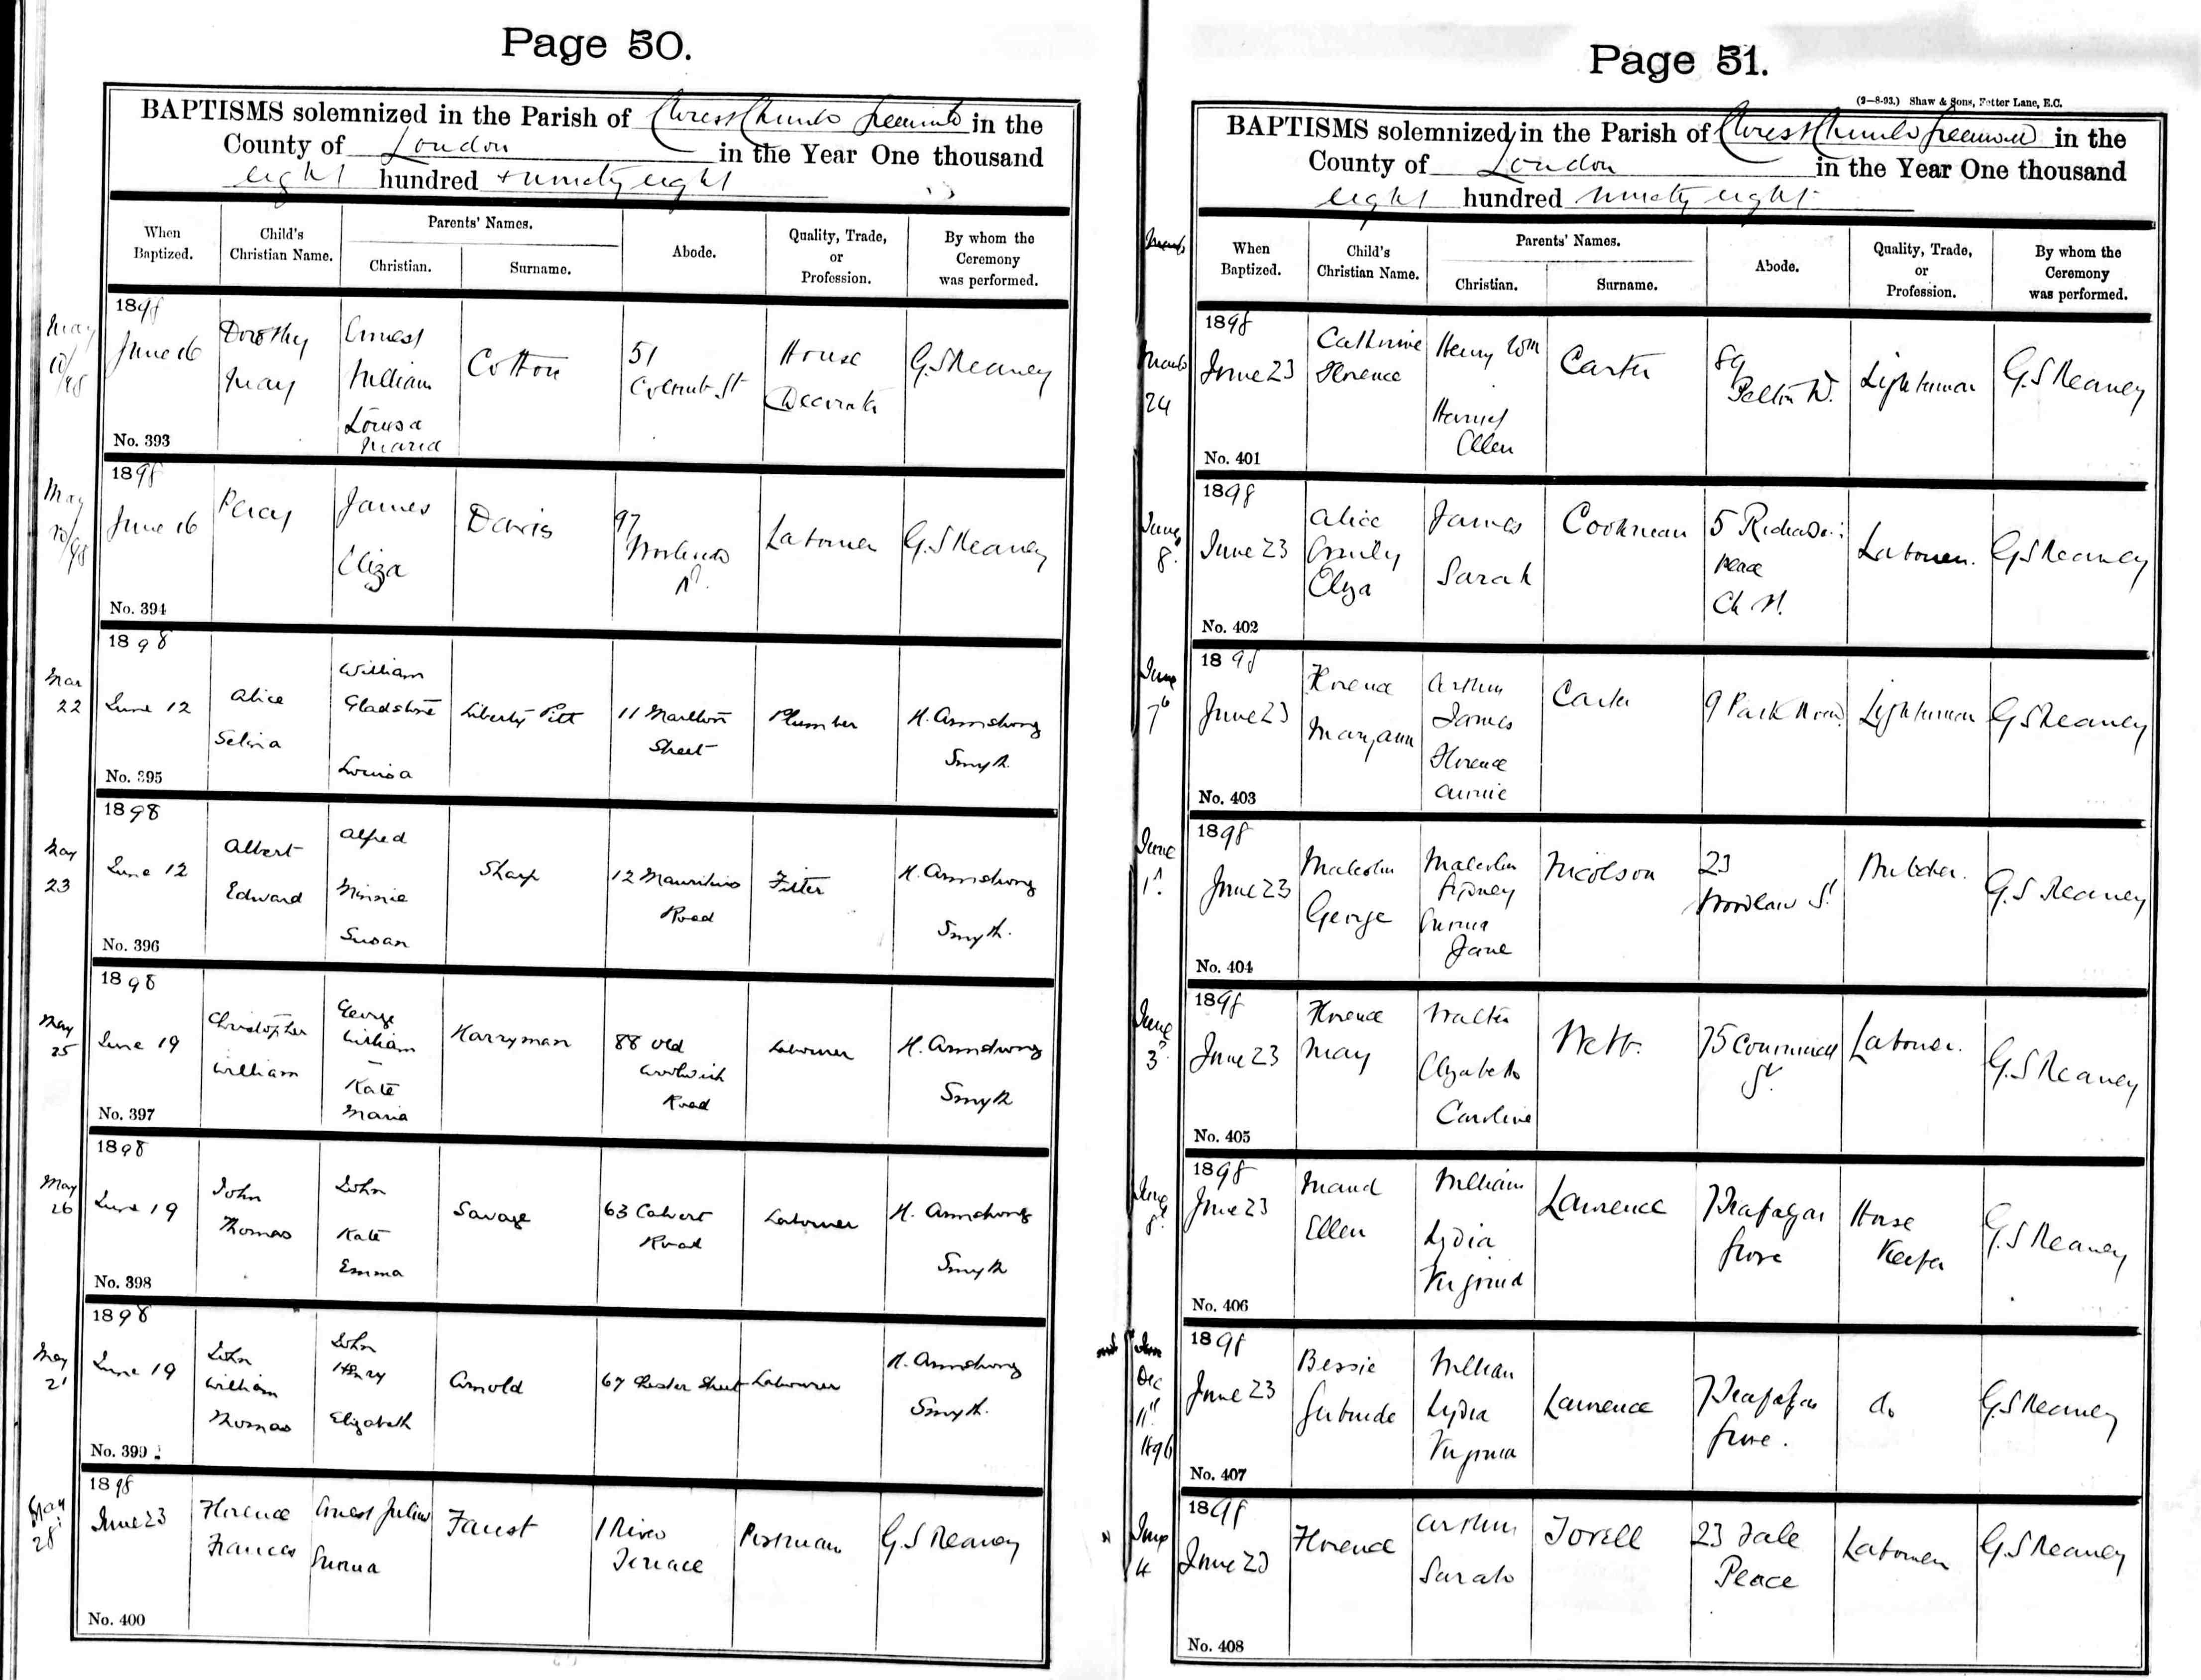 Page 50.
BAPTISMS solemnized in the Parish of Christ Church Greenwich in the
County of London in the Year One thousand
eight hundred + ninety eight
When Baptized.
Child's Christian Name.
Parents' Names.
Christian.
Surname.
Abode.
Quality, Trade, or Profession.
By whom the Ceremony was performed.
May 10/98
1898
June 16
Dorothy May
Ernest William
Louisa Maria
Cotton
51
House Decorator
G.S Reaney
No. 393
May
1898
June 16
Percy
James
Eliza
Davis
97
Labourer
G.S Reaney
No. 394
Mar 22
1898
June 12
Alice Selina
William Gladstone
Louisa
Liberty Pitt
11 Marlton Street
Plumber
H. Armstrong Smyth.
No. 395
May 23
1898
June 12
Albert Edward
Alfred
Minnie Susan
Sharp
12 Mauritius Road
Fitter
H. Armstrong Smyth.
No. 396
May 25
1898
June 19
Christopher William
George William
Kate Maria
Harryman
88 Old Woolwich Road
Labourer
H. Armstrong Smyth
No. 397
May 26
1898
June 19
John Thomas
John
Kate Emma
Savage
63 Calvert Road
Labourer
H. Armstrong Smyth
No. 398
May 21
1898
June 19
John William Thomas
John Henry
Elizabeth
Arnold
67 Chester Street
Labourer
H. Armstrong Smyth.
No. 399
May 28
1898
June 23
Florence Frances
Ernest Julius
Emma
Faust
1 River Terrace
Postman
G.S Reaney
No. 400
Page 51.
(2—8-93.) Shaw & Sons, Fetter Lane, E.C.
BAPTISMS solemnized in the Parish of Christ Church Greenwich in the
County of London in the Year One thousand
eight hundred ninety eight
When Baptized.
Child's Christian Name.
Parents' Names.
Christian.
Surname.
Abode.
Quality, Trade, or Profession.
By whom the Ceremony was performed.
March 24
1898
June 23
Catherine Florence
Henry Wm
Harriet Ellen
Carter
89 Pelton Rd.
Lighterman
G.S Reaney
No. 401
June 8
1898
June 23
Alice Emily Eliza
James
Sarah
Cockman
5
Place
Ch St.
Labourer.
G.S Reaney
No. 402
June 7
1898
June 23
Florence Maryann
Arthur James
Florence Annie
Carter
9 Park Row
Lighterman
G.S Reaney
No. 403
June 1
1898
June 23
Malcolm George
Malcolm Sydney
Emma Jane
Nicolson
23 Woodland St
Butcher.
G.S Reaney
No. 404
June 3
1898
June 23
Florence May
Walter
Elizabeth Caroline
Webb.
75 Commercial St.
Labourer.
G.S Reaney
No. 405
June 8
1898
June 23
Maud Ellen
William
Lydia Virginia
Laurence
7 Trafalgar Grove
House Keeper
G.S Reaney
No. 406
Dec 11th 1896
1898
June 23
Bessie Gertrude
William
Lydia Virginia
Laurence
7 Trafalgar Grove.
do
G.S Reaney
No. 407
June 4
1898
June 23
Florence
Arthur
Sarah
Jorell
23 Place
Labourer
G.S Reaney
No. 408